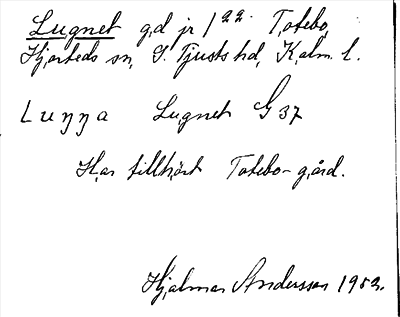 Lugnet gd jr 1²² Totebo,
Hjorteds sn, S. Tjusts hd, Kalm. l.
Luŋŋa Lugnet G 37
Har tillhört Totebo gård.
Hjalmar Andersson 1952.